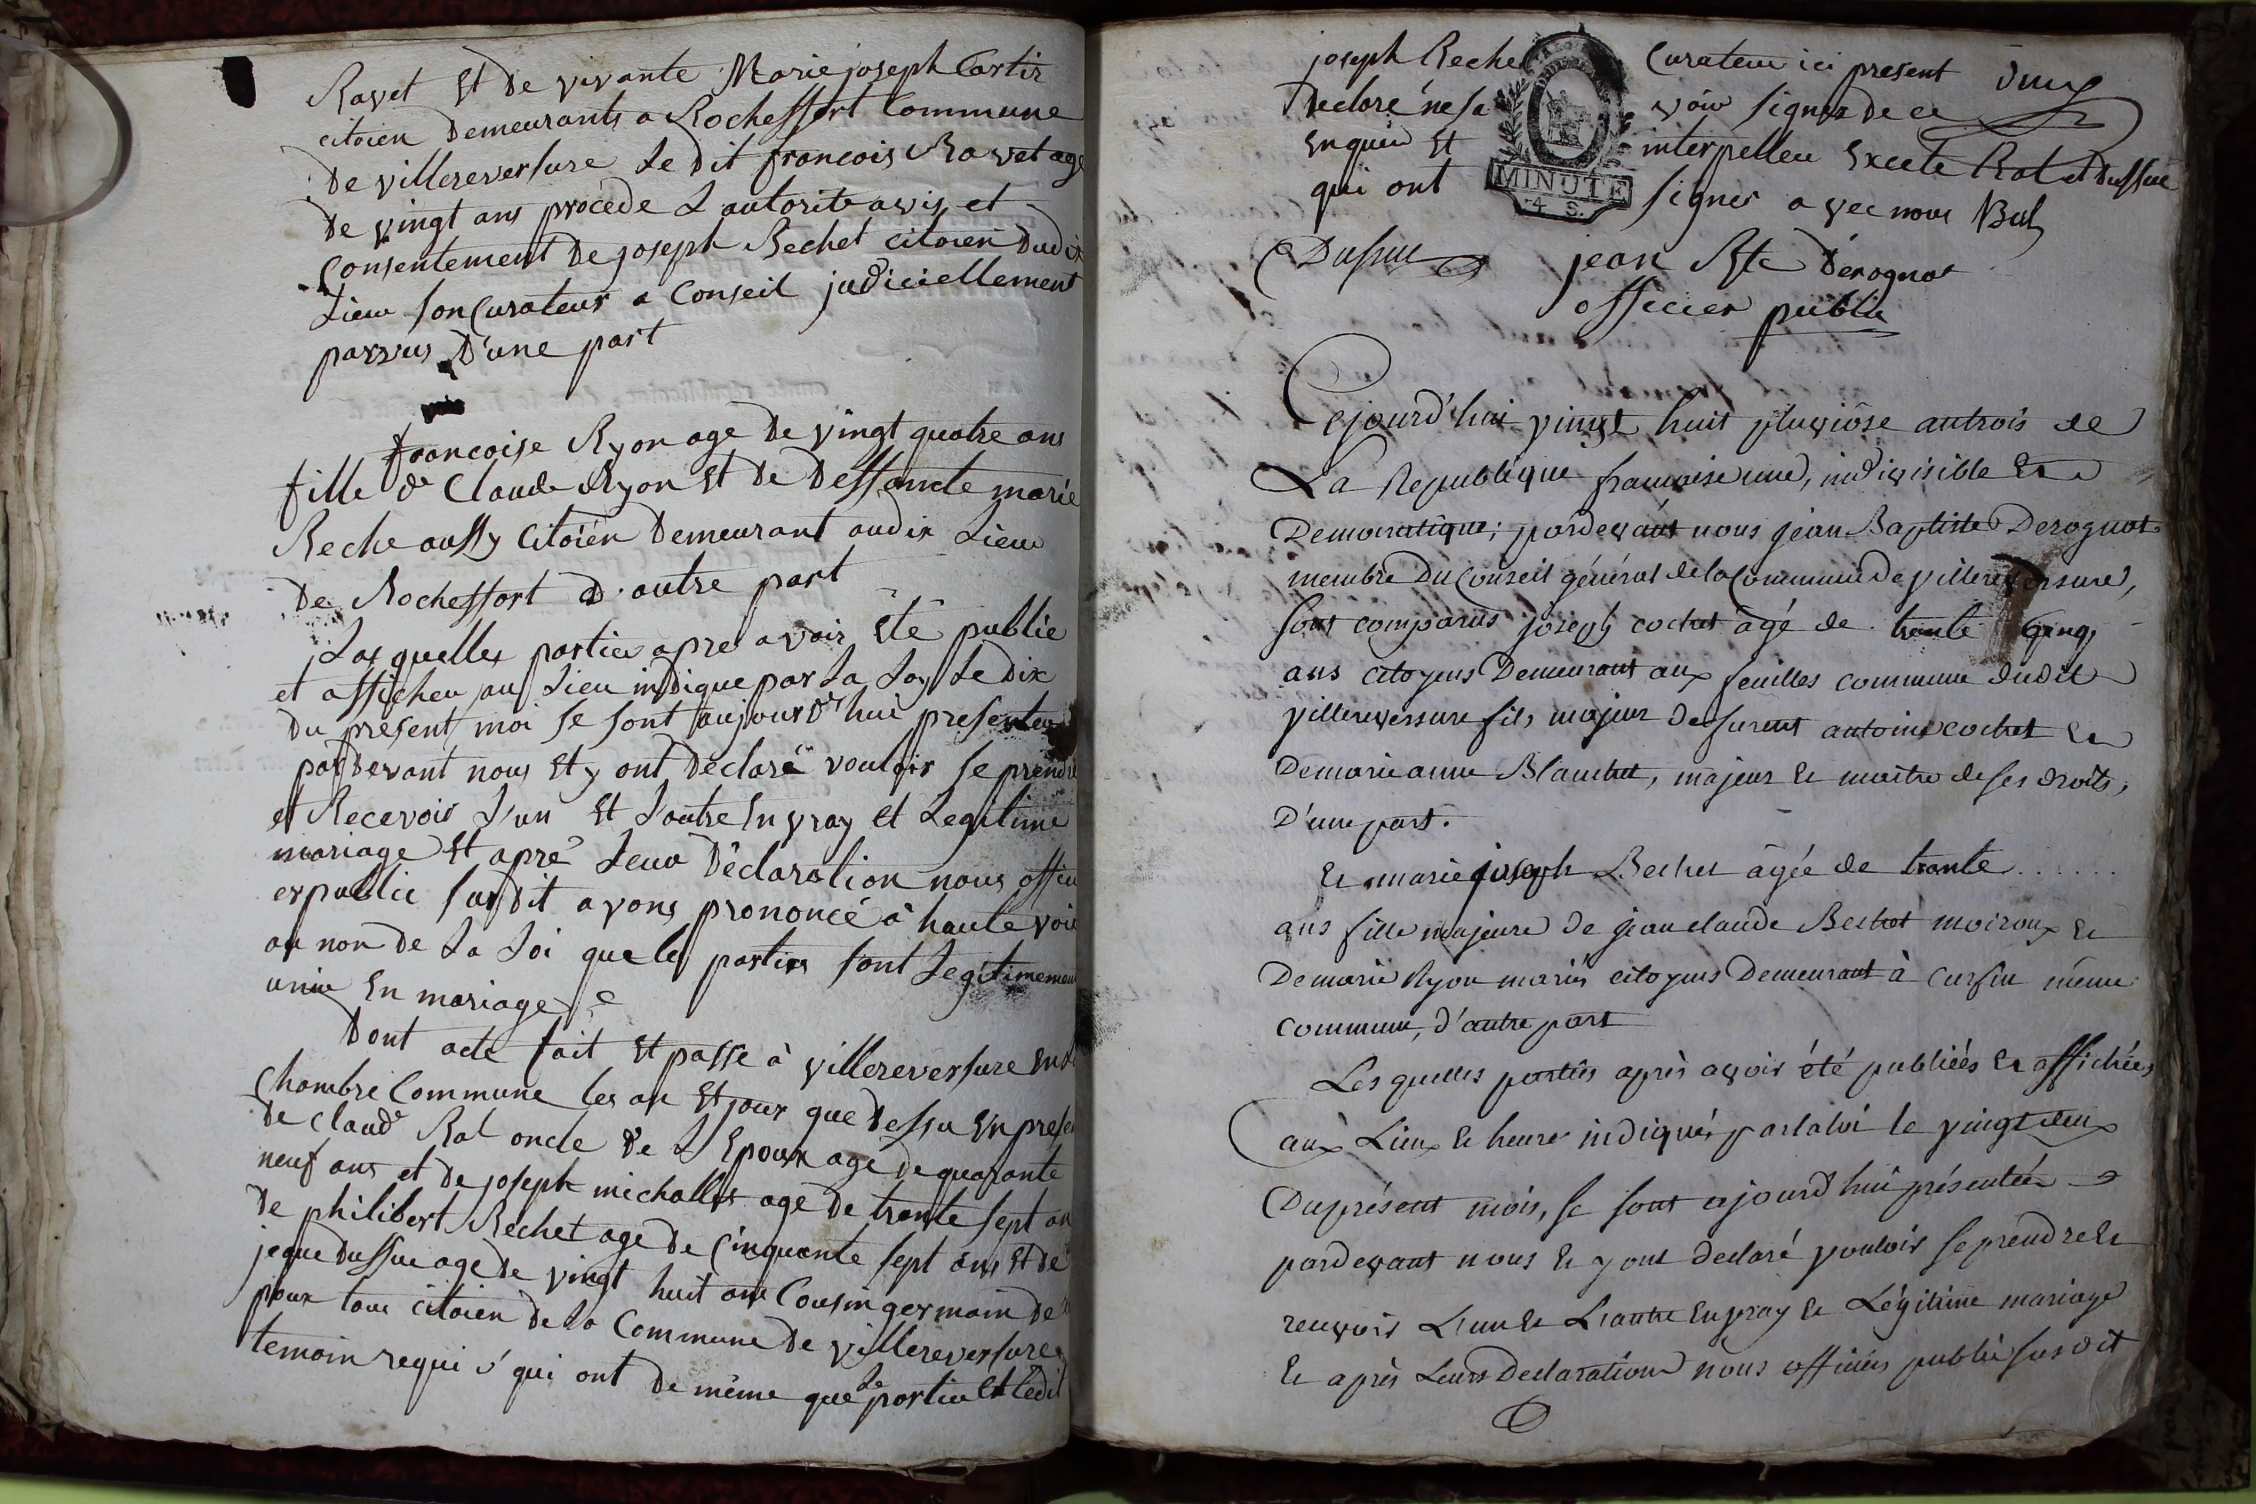 Ravet Et De vivante Marie joseph Cartir
citoien Demeurants a Rocheffort Commune
De villereversure Le Dit francois Ravet age
De vingt ans procede L autorite avis et
Consentement De joseph Bechet citoien Dudit
Lieu son Curateur a Conseil judiciellement
D'une part
francoise Ryon age De vingt quatre ans
fille de Claude Ryon Et De Deffuncte marie
Reche aussy Citoien Demeurant audit Lieu
De Rocheffort d'autre part
Las quelles partiea apre avoir Eté publie
et afficheu au Lieu indique par La Loy Le Dix
Du present moi se sont aujourd'hui presenteu
par Devant nous Et y ont Declaré vouloir se prendre
et Recevoir L'un Et L'autre En vray Et Legitime
mariage Et apré Leur Déclaration nous offici
er public susdit avons prononcé à haute voix
au non de La Loi que les parties sont Legitimement
unie En mariage
Dont acte fait Et passe à villereversure En la
Chambre Commune les an Et jour que Dessu En presen
De Claud Rat oncle De L'Epoux agé De quarante
neuf ans et de joseph michallet age De trente sept an
De philibert Bechet age De Cinquante sept ans Et De
jaque Dussuc age De vingt huit ans Cousin germain De
pour tous citoien De La Commune De villereversure
temoin requi s' qui ont De même que Le partie Et ledit
joseph Beche Curateur ici present
Declaré ne sa voir signer De ce
Enquis Et interpelleu Excete Rat et Dussuc
qui ont signer avec nous
MINUTE
4 S.
Dussuc jean Bte Dérognat
officier public
Cejourd'hui vingt huit pluviôse antrois de
La Republique francaise une, indivisible Et
Democratique; pardevant nous jean Baptiste Derognat
membre Du Conseil général de la Commune De villereversure,
sont comparus joseph cochet âgé de trente cinq
ans citoyens Demeurant aux feuilles commune dudit
villereversure fils majeur De furent antoine cochet Et
De marie anne Blanchet, majeur Et maitre de ses droits,
D'une part.
Et marie joseph Bechet âgée de trante ......
ans fille majeure De jean claude Bechet moiroux Et
De marie Ryon mariés citoyens Demeurant à Cursin même
commune, d'autre part
Les quelles parties après avoir été publiées Et affichées
aux Lieux Et heure indiqués par la loi le vingt deux
Du présent mois, se sont ajourd'hui présentées
pardevant nous Et y ont declaré vouloir se prendre Et
recevoir L'un Et L'autre En vray Et Légitime mariage
Et après Leurs Declaration nous officiers public susdit